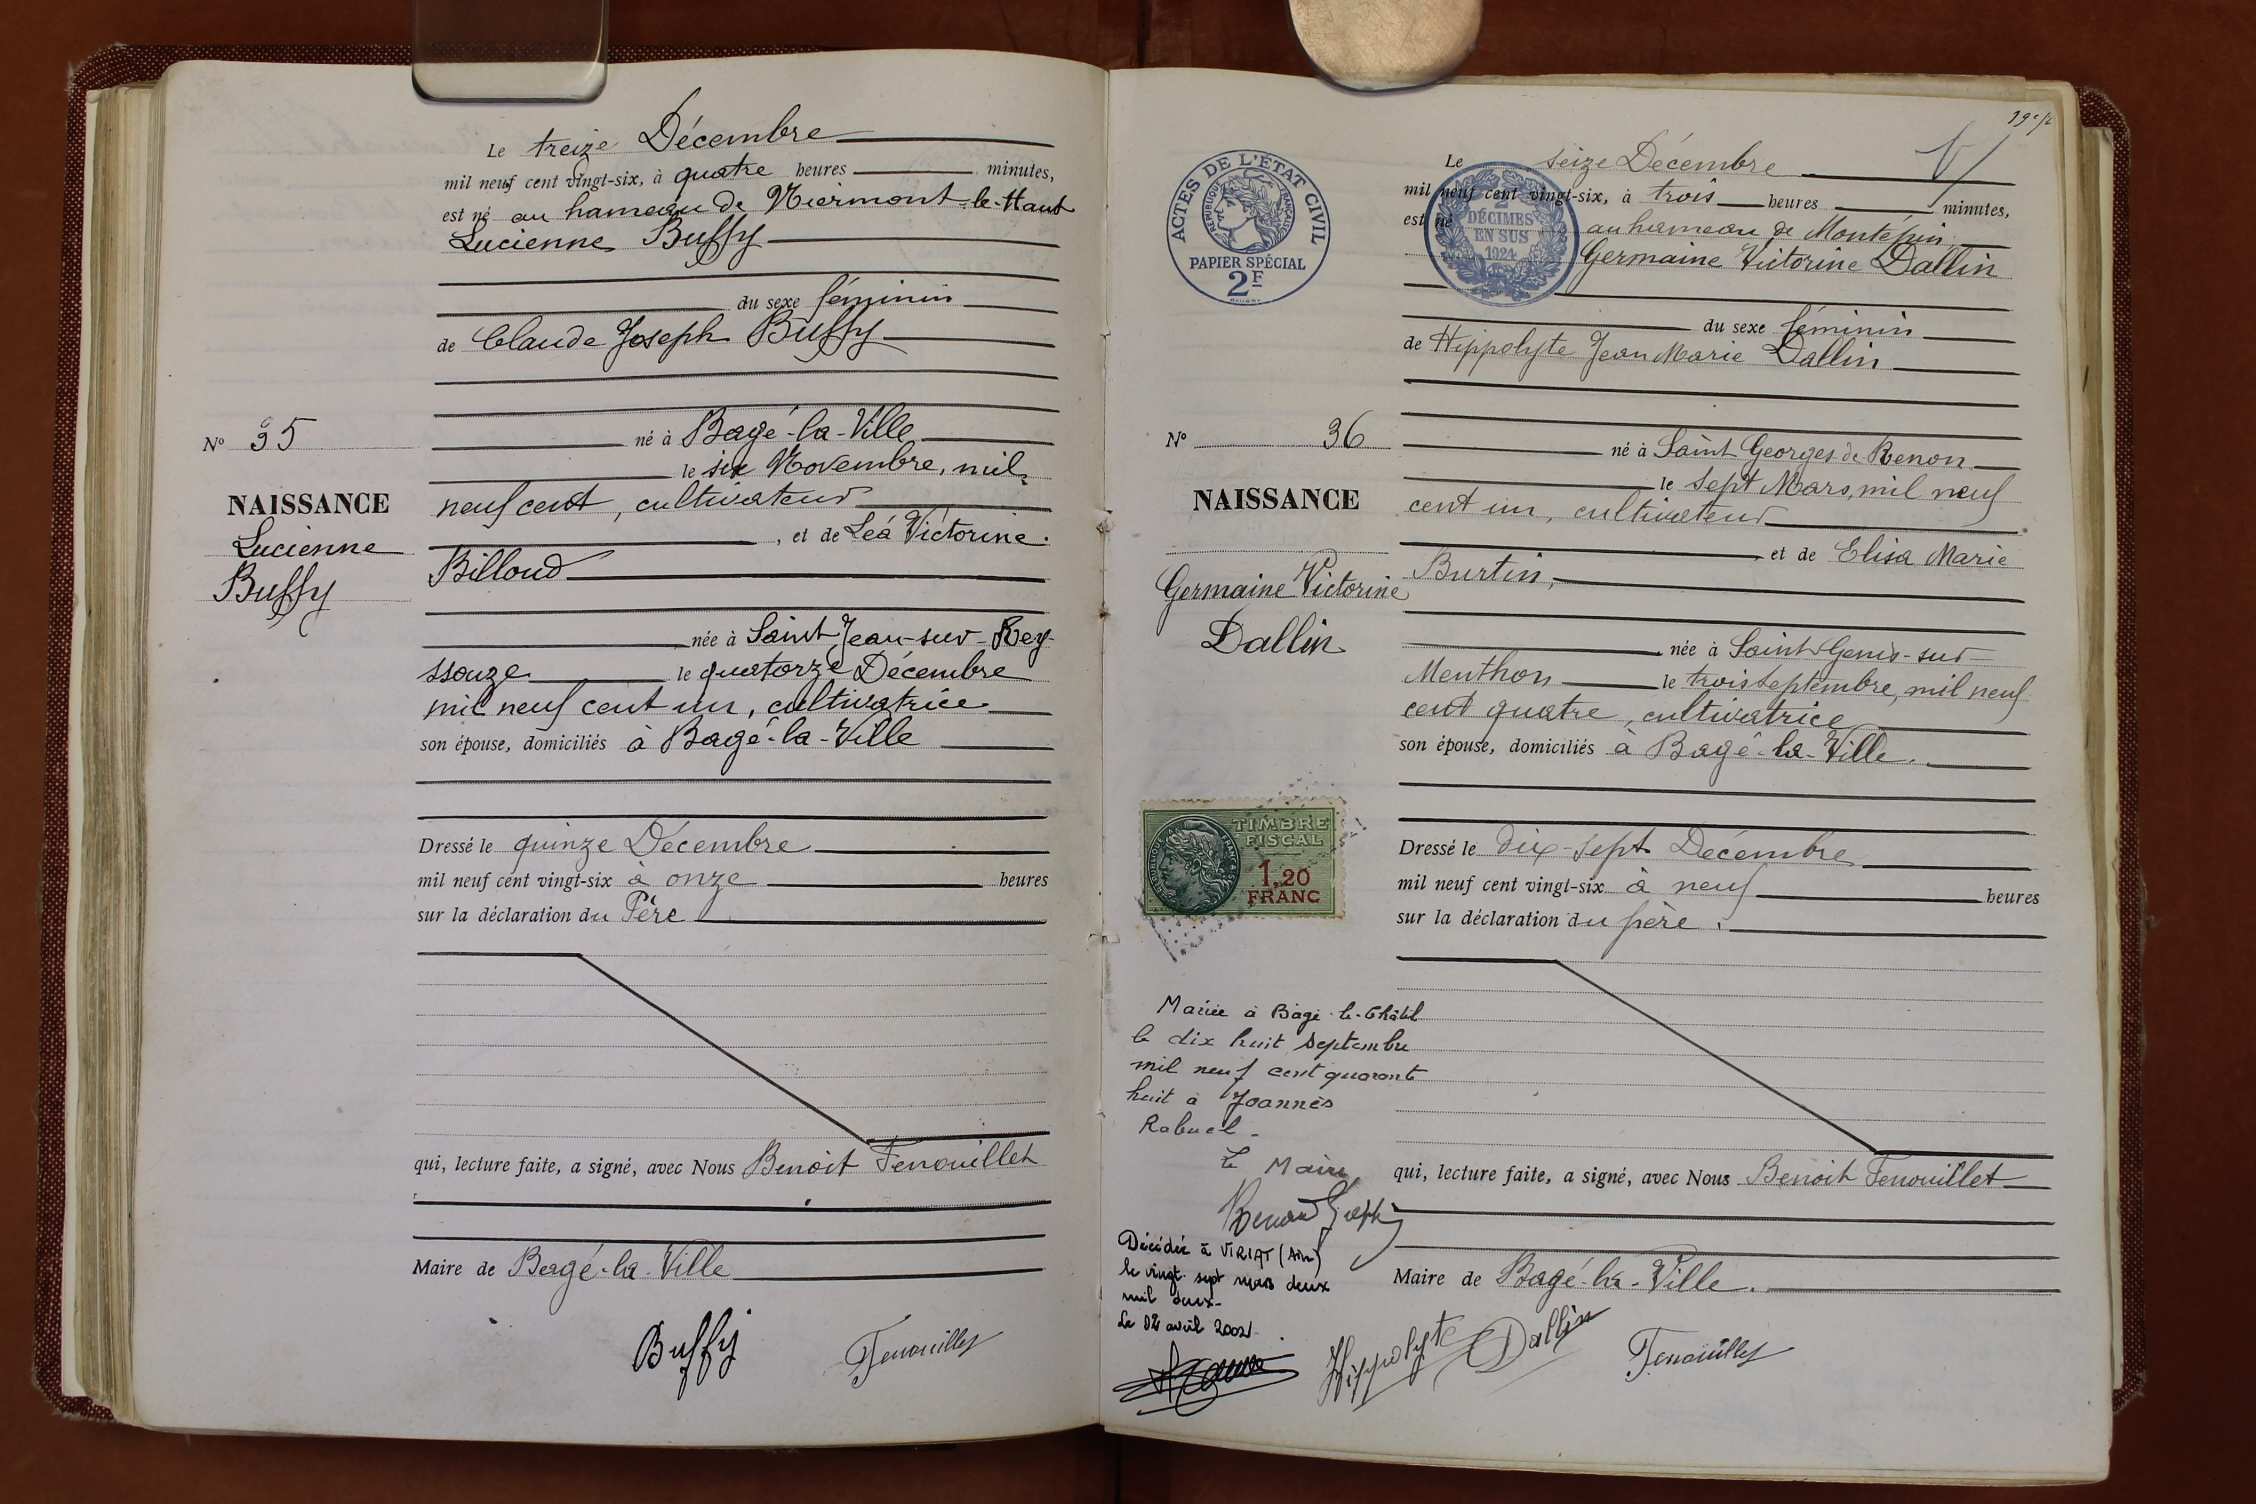 Le treize Décembre
mil neuf cent vingt-six, à quatre heures minutes,
est né au hameau de Niermont-le-Haut
Lucienne Buffy
du sexe féminin
de Claude Joseph Buffy
né à Bagé-la-Ville
le six Novembre, mil
neuf cent, cultivateur
, et de Léa Victorine
Billoud
née à Saint Jean-sur-Rey-
ssouze le quatorze Décembre
mil neuf cent un, cultivatrice
son épouse, domiciliés à Bagé-la-Ville
Dressé le quinze Décembre
mil neuf cent vingt-six à onze heures
sur la déclaration du Père
qui, lecture faite, a signé, avec Nous Benoit Fenouillet
Maire de Bagé-la-Ville
Buffy
Fenouillet
N° 35
NAISSANCE
Lucienne
Buffy
ACTES DE L'ÉTAT CIVIL
RÉPUBLIQUE FRANÇAISE
PAPIER SPÉCIAL
2F
Le seize Décembre
mil neuf cent vingt-six, à trois heures minutes,
est né au hameau de Montépin
Germaine Victorine Dallin
2
DÉCIMES
EN SUS
1924
du sexe féminin
de Hippolyte Jean Marie Dallin
né à Saint Georges de Renon
le sept Mars, mil neuf
cent un, cultivateur
et de Elisa Marie
Burtin,
née à Saint Genis-sur-
Menthon le trois septembre, mil neuf
cent quatre, cultivatrice
son épouse, domiciliés à Bagé-la-Ville.
Dressé le dix-sept Décembre
mil neuf cent vingt-six à neuf heures
sur la déclaration du père.
qui, lecture faite, a signé, avec Nous Benoit Fenouillet
Maire de Bagé-la-Ville.
Hippolyte Dallin
Fenouillet
N° 36
NAISSANCE
Germaine Victorine
Dallin
TIMBRE
FISCAL
1,20
FRANC
Mariée à Bagé-le-Châtel
le dix huit Septembre
mil neuf cent quarante
huit à Joannès
Rabuel-
Le Maire
Décédée à VIRIAT (Ain)
le vingt sept mars deux
mil deux-
Le 02 avril 2002.